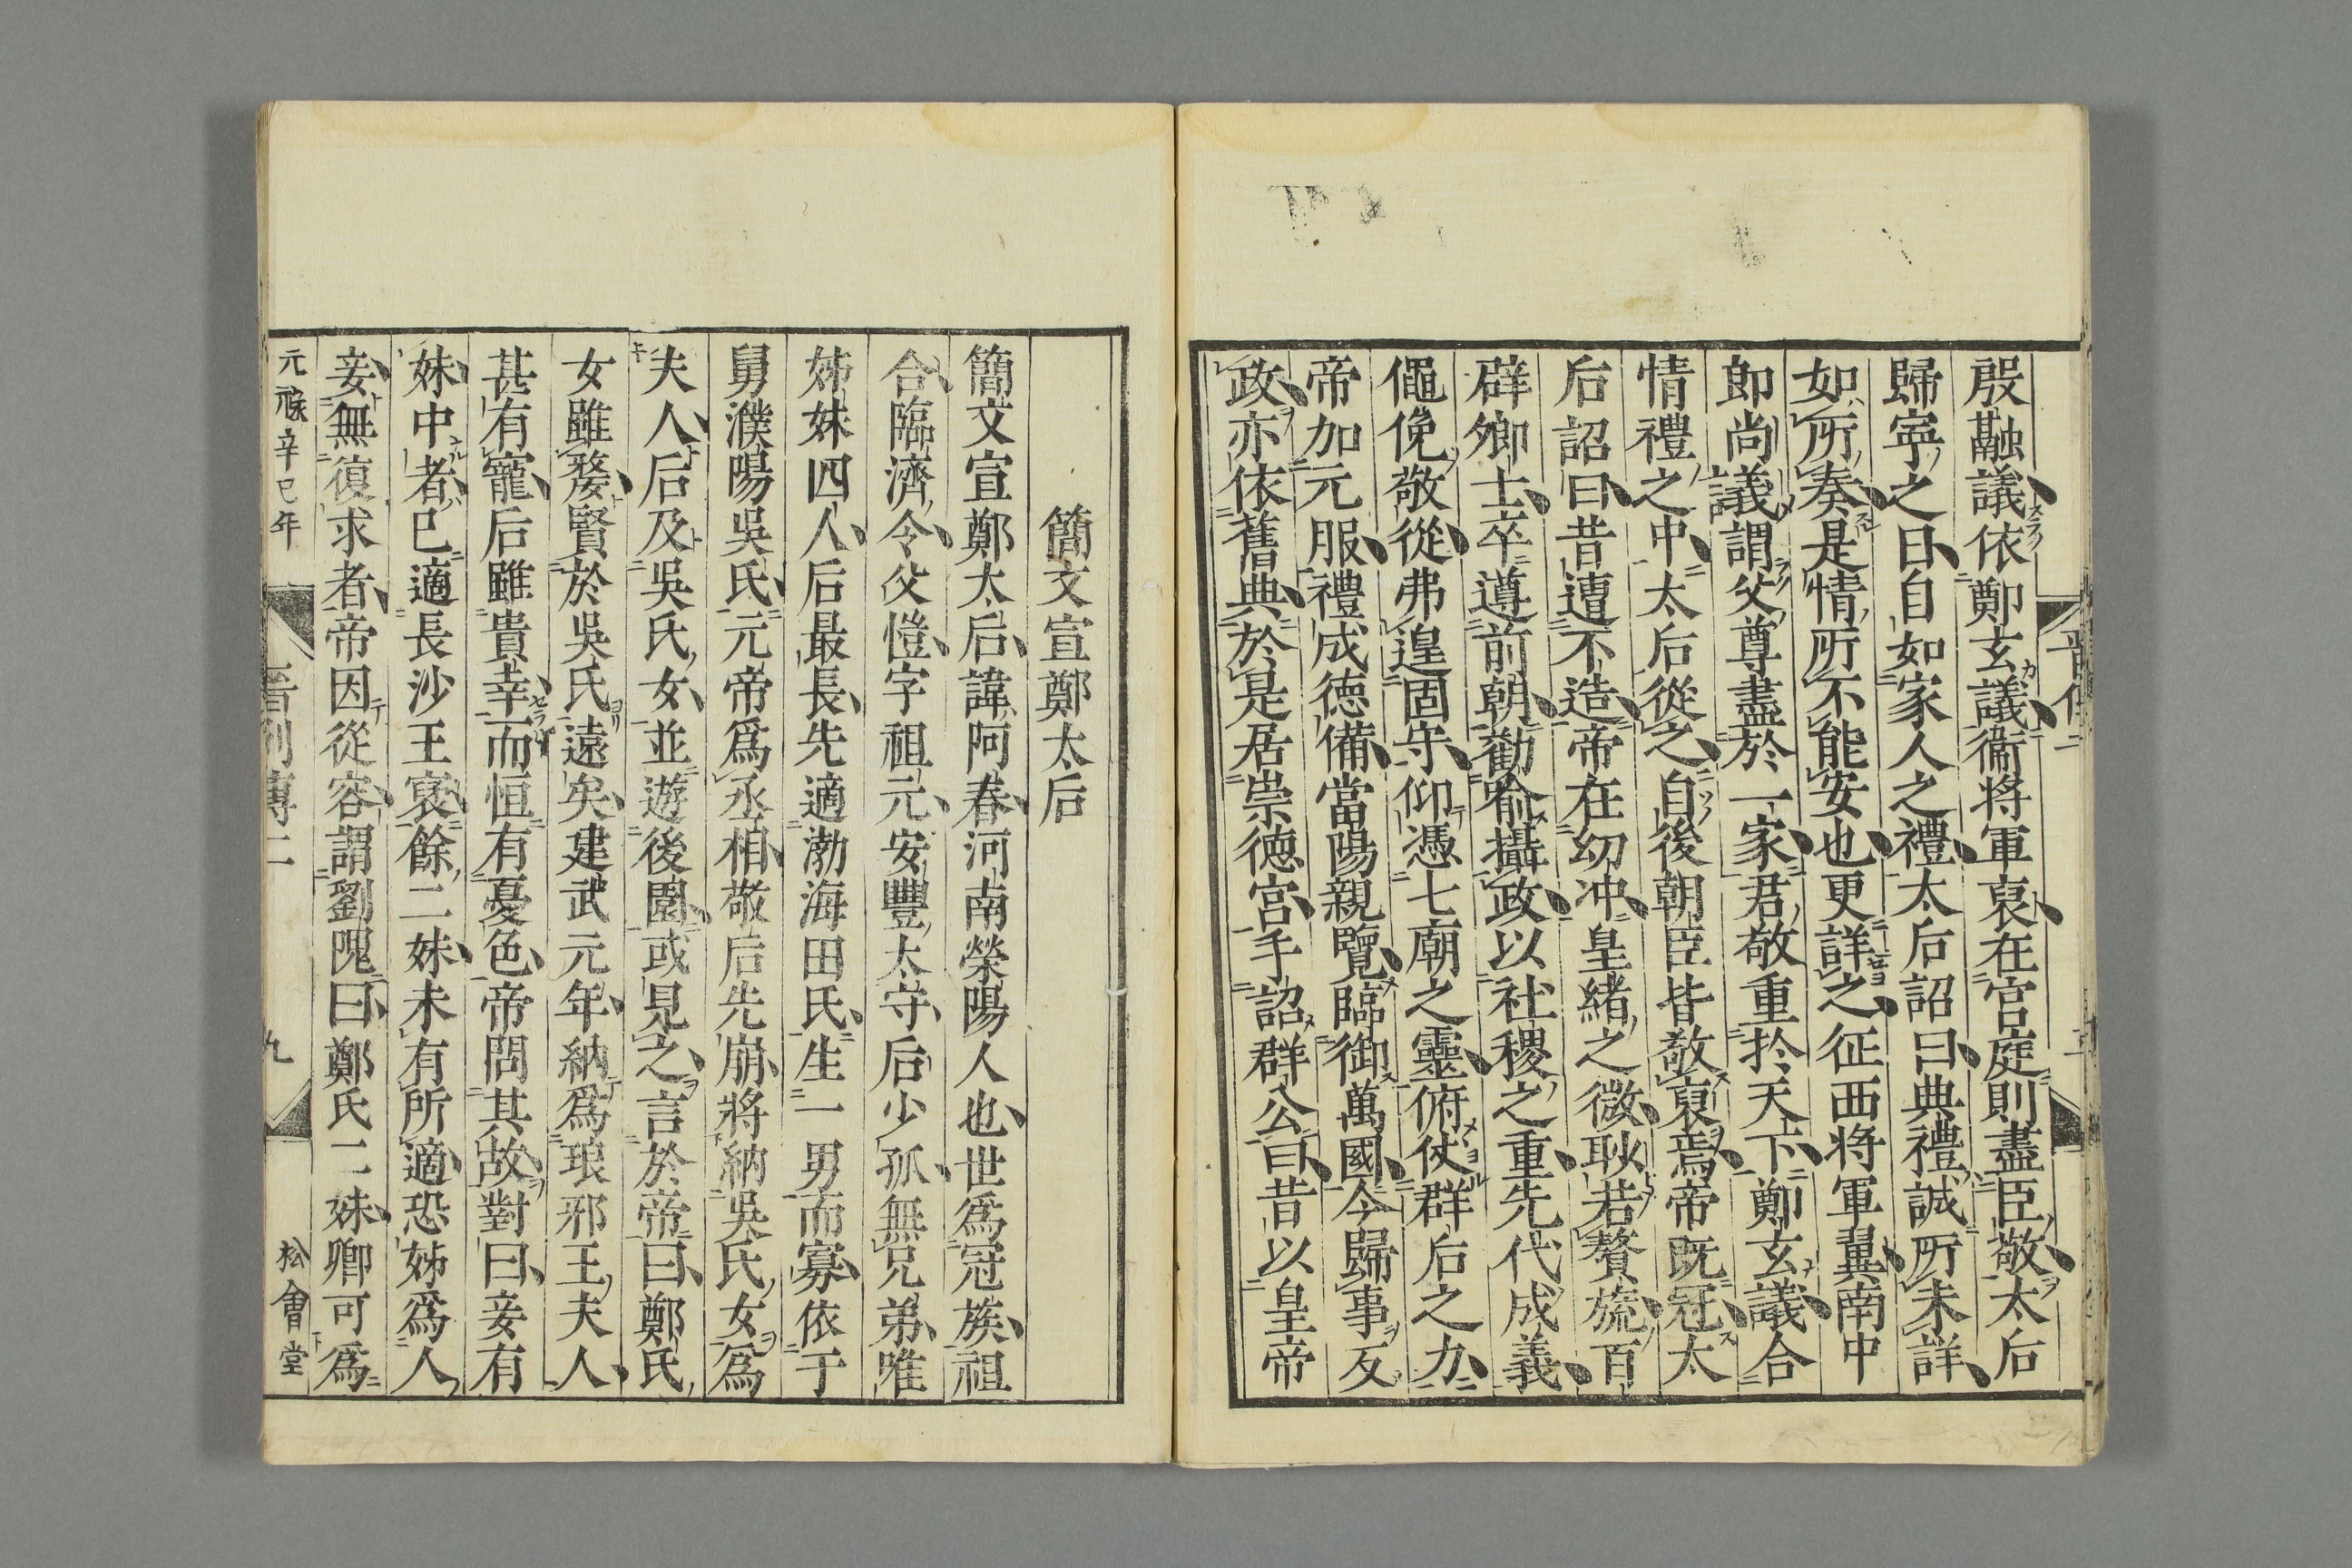 殷融議依鄭玄議衞将軍裒在宮庭則盡臣敬太后
歸寧之日自如家人之禮太后詔曰典禮誠所未詳
如所奏是情所不能安也更詳之征西将軍翼南中
郎尚議謂父尊盡於一家君敬重於天下鄭玄議合
情禮之中太后從之自後朝臣皆敬裒焉帝既冠太
后詔曰昔遭不造帝在幼冲皇緒之微眇若贅旒百
辟卿士卒遵前朝勸喻攝政以社稷之重先代成義
僶俛敬從弗遑固守仰憑七廟之靈俯仗群后之力
帝加元服禮成徳備當陽親覽臨御萬國今歸事反
政亦依舊典於是居崇徳宮手詔群公曰昔以皇帝
簡文宣鄭太后
簡文宣鄭太后諱阿春河南榮陽人也世爲冠族祖
合臨濟令父愷字祖元安豐太守后少孤無兄弟唯
姊妹四人后最長先適渤海田氏生一男而寡依于
舅濮陽吳氏元帝爲丞相敬后先崩將納吳氏女爲
夫人后及吳氏女並遊後園或見之言於帝曰鄭氏
女雖嫠賢於吳氏遠矣建武元年納爲琅邪王夫人
甚有寵后雖貴幸而恒有憂色帝問其故對曰妾有
妹中者已適長沙王褒餘二妹未有所適恐姊爲人
妾無復求者帝因從容謂劉隗曰鄭氏二妹卿可爲
元祿辛巳年
晋列傳二
九
松會堂